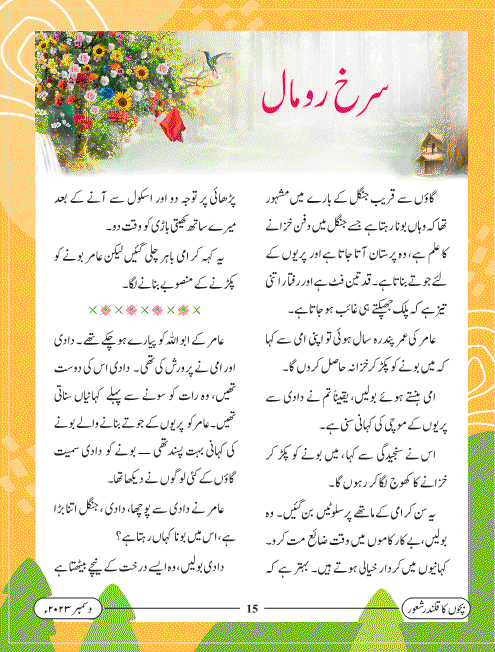 سرخ رومال
گاؤں سے قریب جنگل کے بارے میں مشہور
تھا کہ وہاں بونا رہتا ہے جسے جنگل میں دفن خزانے
کا علم ہے، وہ پرستان آتا جاتا ہے اور پریوں کے
لئے جوتے بناتا ہے۔ قد تین فٹ ہے اور رفتار اتنی
تیز ہے کہ پلک جھپکتے ہی غائب ہو جاتا ہے۔
عامر کی عمر پندرہ سال ہوئی تو اپنی امی سے کہا
کہ میں بونے کو پکڑ کر خزانہ حاصل کروں گا۔
امی ہنستے ہوئے بولیں، یقیناً تم نے دادی سے
پریوں کے موچی کی کہانی سنی ہے۔
اس نے سنجیدگی سے کہا، میں بونے کو پکڑ کر
خزانے کا کھوج لگا کر رہوں گا۔
یہ سن کر امی کے ماتھے پر سلوٹیں بن گئیں۔ وہ
بولیں، بے کار کاموں میں وقت ضائع مت کرو۔
کہانیوں میں کردار خیالی ہوتے ہیں۔ بہتر ہے کہ
پڑھائی پر توجہ دو اور اسکول سے آنے کے بعد
میرے ساتھ کھیتی باڑی کو وقت دو۔
یہ کہہ کر امی باہر چلی گئیں لیکن عامر بونے کو
پکڑنے کے منصوبے بنانے لگا۔
عامر کے ابو اللہ کو پیارے ہو چکے تھے۔ دادی
اور امی نے پرورش کی تھی۔ دادی اس کی دوست
تھیں، وہ رات کو سونے سے پہلے کہانیاں سناتی
تھیں۔ عامر کو پریوں کے جوتے بنانے والے بونے
کی کہانی بہت پسند تھی — بونے کو دادی سمیت
گاؤں کے کئی لوگوں نے دیکھا تھا۔
عامر نے دادی سے پوچھا، دادی، جنگل اتنا بڑا
ہے، اس میں بونا کہاں رہتا ہے؟
دادی بولیں، وہ ایسے درخت کے نیچے بیٹھتا ہے
بچوں کا قلندر شعور
15
دسمبر ۲۰۲۳ء